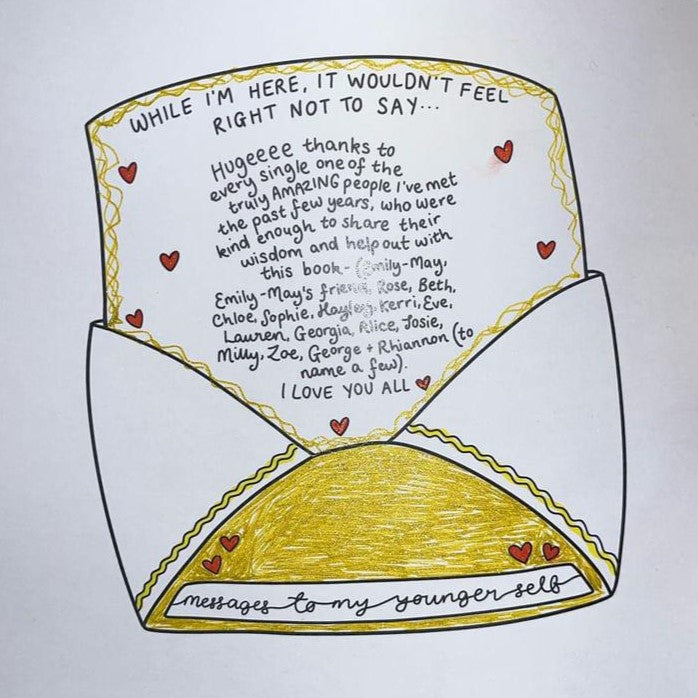 WHILE I'M HERE, IT WOULDN'T FEEL
RIGHT NOT TO SAY...
Hugeeee thanks to
every single one of the
truly AMAZING people I've met
the past few years, who were
kind enough to share their
wisdom and help out with
this book- (Emily-May,
Emily-May's friend, Rose, Beth,
Chloe, Sophie, Hayley, Kerri, Eve,
Lauren, Georgia, Alice, Josie,
Milly, Zoe, George + Rhiannon (to
name a few).
I LOVE YOU ALL
messages to my younger self